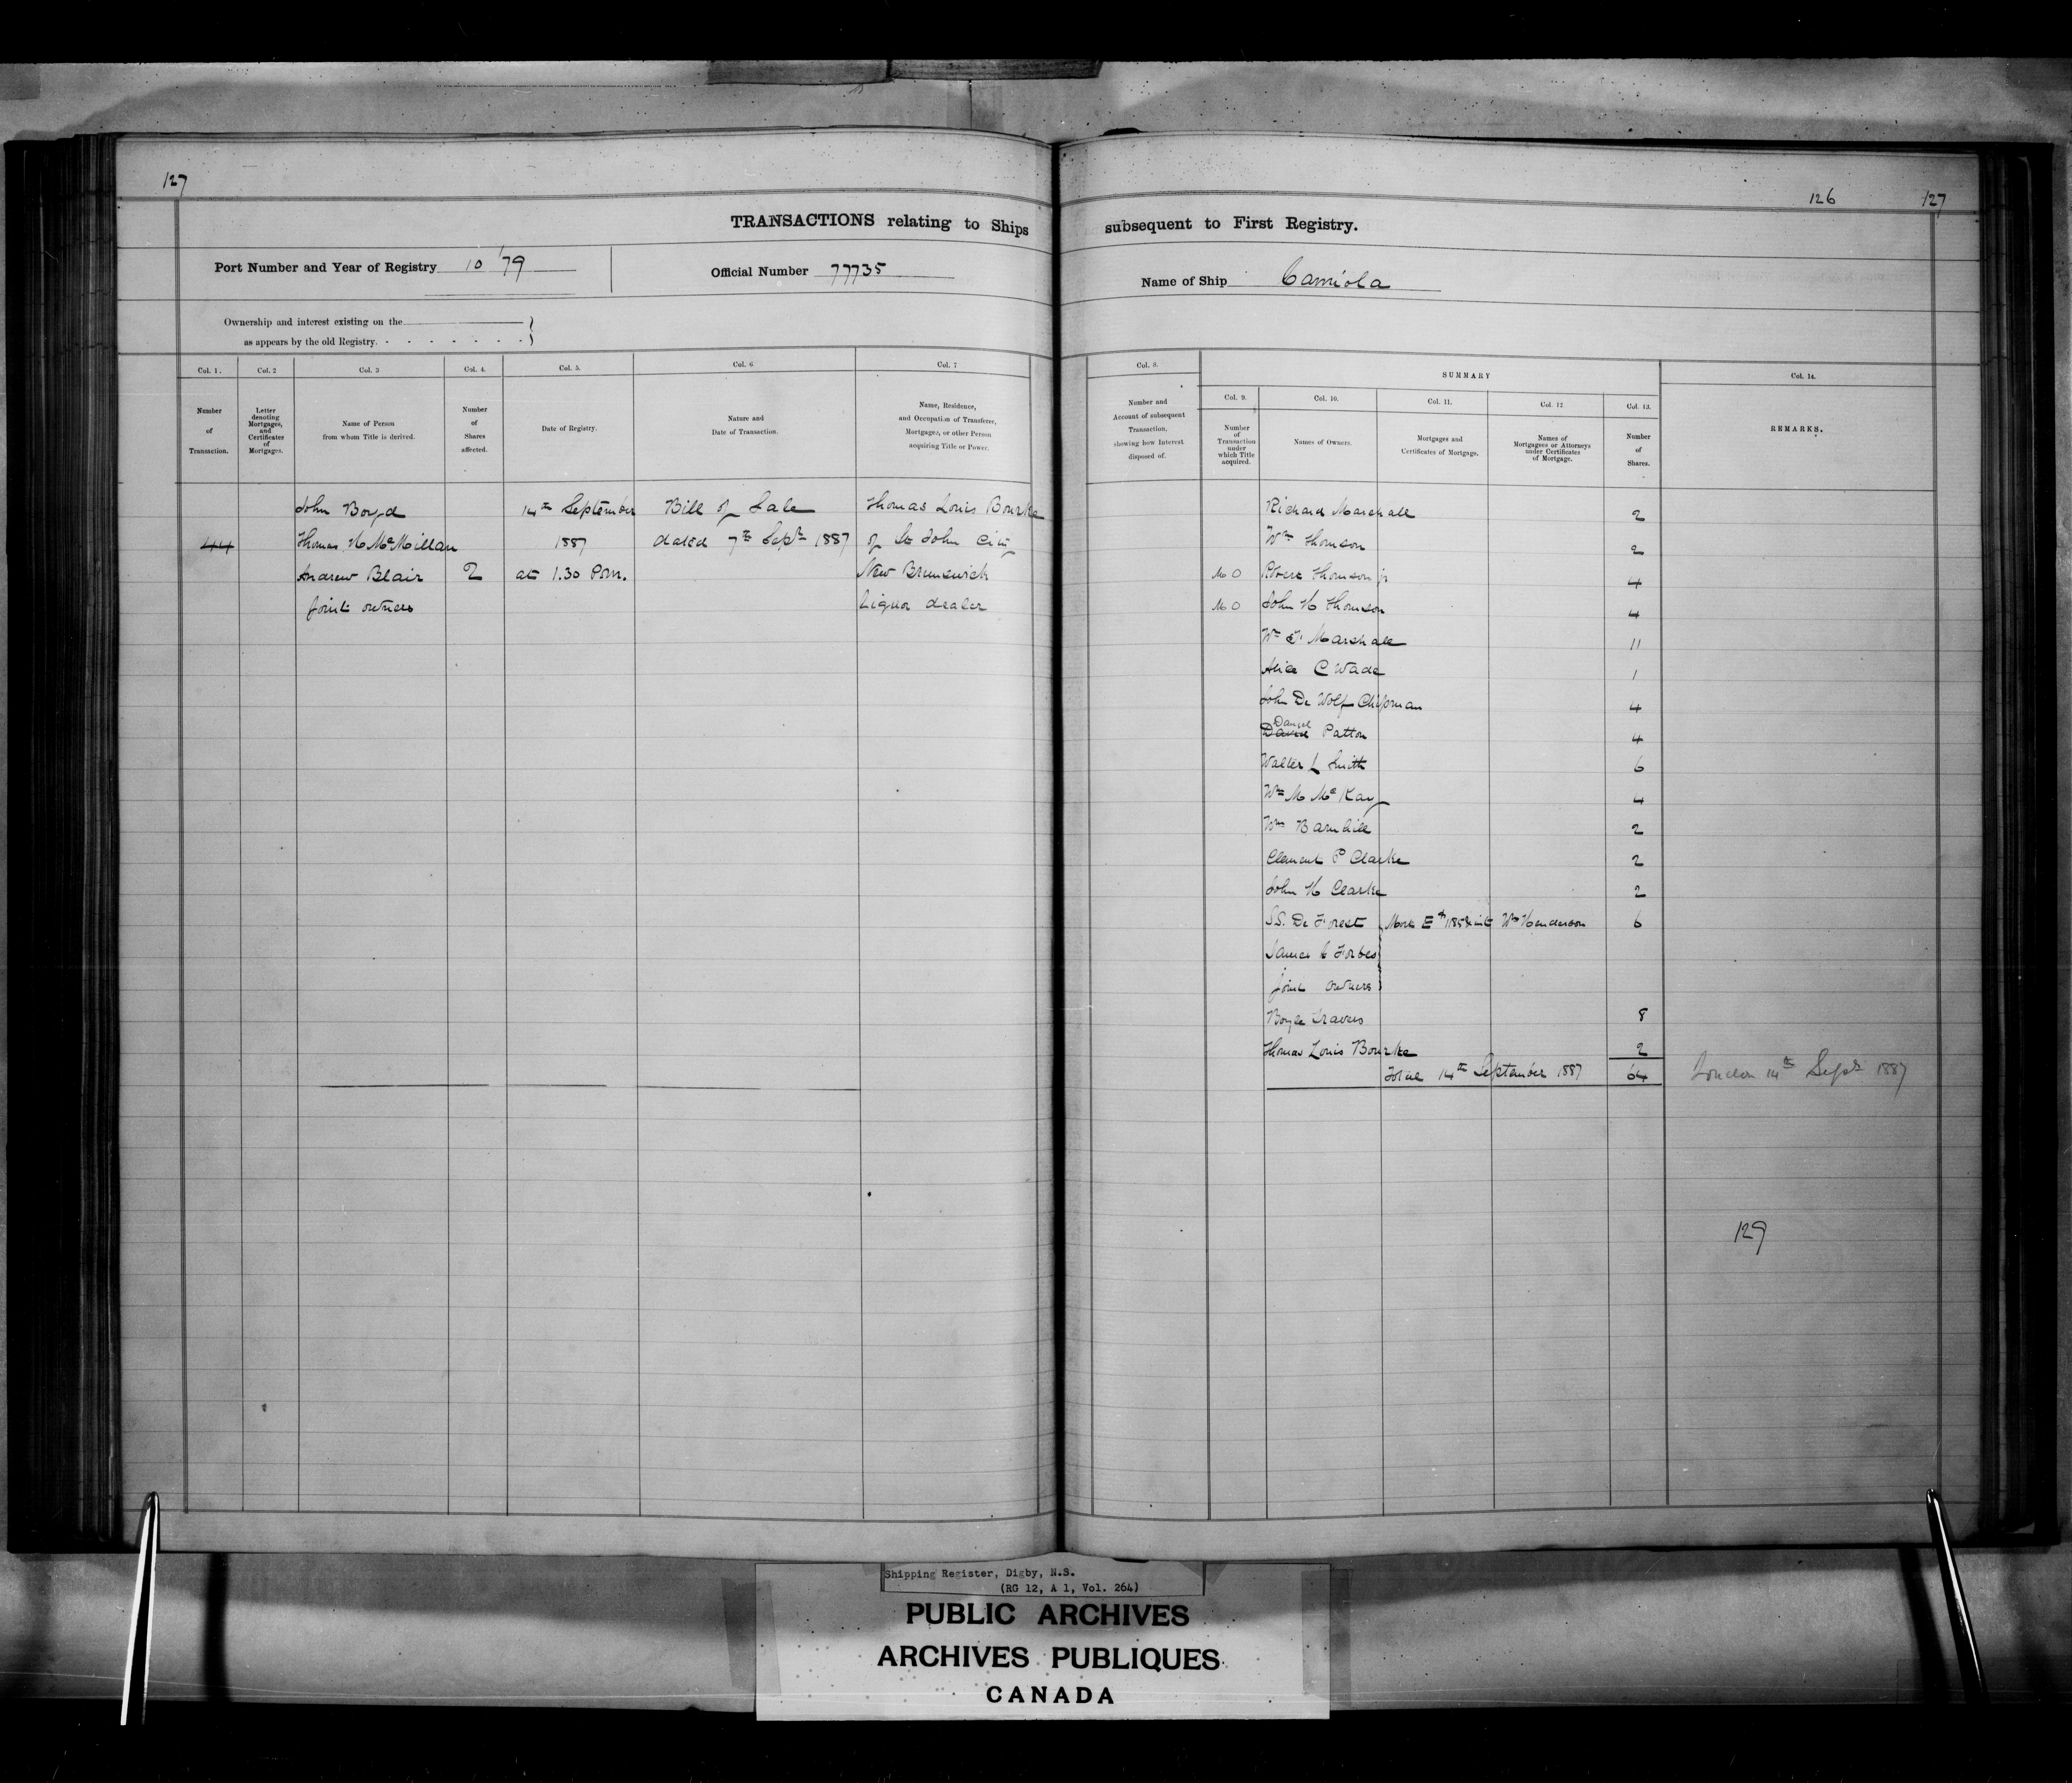 127
126 127
TRANSACTIONS relating to Ships subsequent to First Registry.
Port Number and Year of Registry 10 '79
Official Number 77735
Name of Ship Carniola
Ownership and interest existing on the
as appears by the old Registry.
Col. 1. Col. 2 Col. 3 Col. 4. Col. 5. Col. 6 Col. 7
Number of Transaction.
Letter denoting Mortgages, and Certificates of Mortgages.
Name of Person from whom Title is derived.
Number of Shares affected.
Date of Registry.
Nature and Date of Transaction.
Name, Residence, and Occupation of Transferee, Mortgagee, or other Person acquiring Title or Power.
Col. 8. SUMMARY Col. 14.
Col. 9. Col. 10. Col. 11. Col. 12. Col. 13.
Number and Account of subsequent Transaction, showing how Interest disposed of.
Number of Transaction under which Title acquired.
Names of Owners.
Mortgages and Certificates of Mortgage.
Names of Mortgagees or Attorneys under Certificates of Mortgage.
Number of Shares.
REMARKS.
John Boyd 14th September Bill of Sale Thomas Louis Bourke
44 Thomas H McMillan 1887 dated 7th Septr 1887 of St John City
Andrew Blair 2 at 1.30 P.m. New Brunswick
Joint owners Liquor dealer
Richard Marshall 2
Wm Thomson 2
Robert Thomson jr 4
John H Thomson 4
Marshall 11
Alice C Wade 1
John De Wolf Chipman 4
Daniel
David Patton 4
Walter L Smith 6
Wm M McKay 4
Wm Barnhill 2
Clement P Clarke 2
John H Clarke 2
S.S. De Forest Mort E Wm Henderson 6
Forbes
Joint owners
Boyle Travers 8
Thomas Louis Bourke 2
Total 14th September 1887 64 London 14th Septr 1887
129
Shipping Register, Digby, N.S.
(RG 12, A 1, Vol. 264)
PUBLIC ARCHIVES
ARCHIVES PUBLIQUES
CANADA